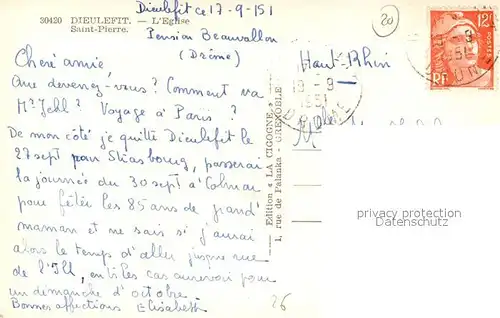 30420 DIEULEFIT. — L'Eglise
Saint-Pierre.
Dieulefit ce 17-9-151
Pension Beauvallon
(Drôme)
Chère amie,
Que devenez-vous? Comment va
Mr Jehl? Voyage à Paris?
De mon côté je quitte Dieulefit le
27 sept pour Strasbourg, passerai
la journée du 30 sept à Colmar
pour fêter les 85 ans de grand'
maman et ne sais si j'aurai
alors le temps d'aller jusque rue
de l'Ill, en tt les cas au revoir pour
un dimanche d'octobre.
Bonnes affections Elisabeth
Edition « LA CIGOGNE »
1, rue de Palanka - GRENOBLE
20
Haut-Rhin
12F
POSTES
RF
18-9
1951
DROME
privacy protection
Datenschutz
26